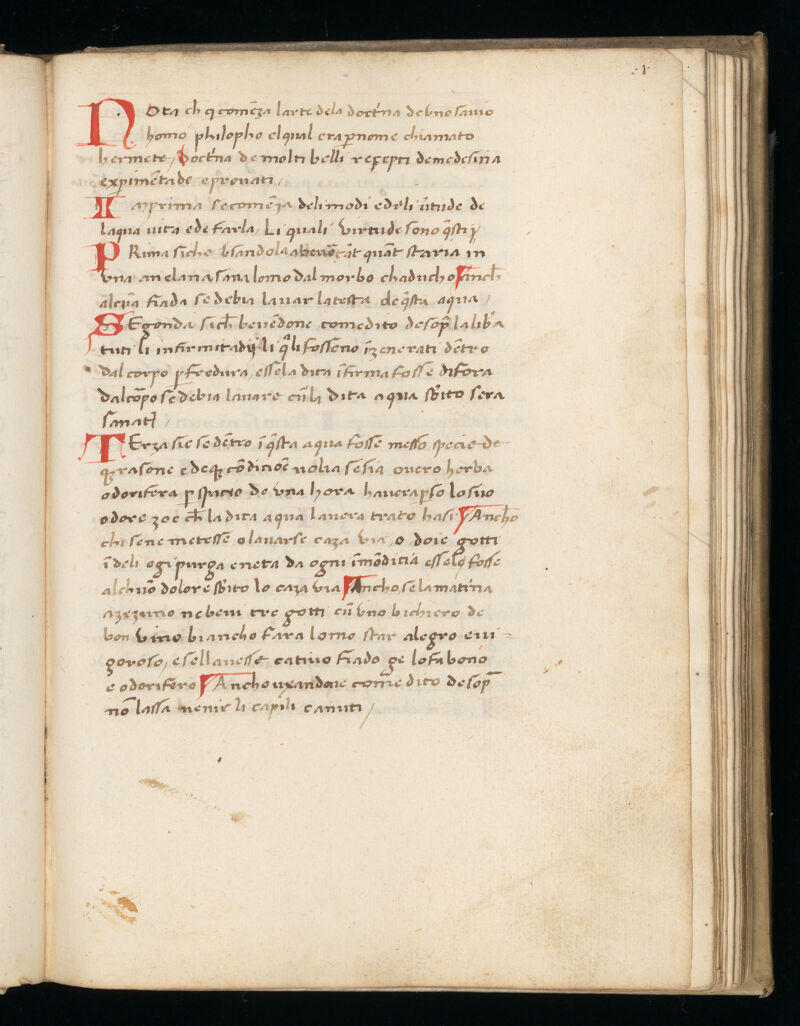 .1.
NOta ch̄ q comēza larte dela doctr̄na de vno sauio
homo philopho elqual era ꝑ nome chiamato
hermete, doctr̄na de molti belli receᵽti de medesina
exꝑimētade e prouati,
INprima se comēza deli modi e deli v̄tude de
laqua uita e de farla, Li quali virtude sono q̄sti
PRima siche vsandola a beuer tāt quāt staria in
vna anelana, sana lomo dal morbo chaducho Anch̄
alcūa fiada se debia lauar la testa de q̄sta aqua,
SEgonda sich̄ beuēdone come dito de sop̄ la libr̄a
tuti li infirmitadi li q̄li fosseno īzenerati dētro
dal corpo ꝑ fredura, esse la dita īfirma fosse difora
dal corpo se debia lauare cū la dita aqua sbito sera
sanati,
TErza sie se dētro ī q̄sta aqua fosse messo specie de
q̄ rasone e de q̄ cōdicioē uolia se sia ouero herba
odorifera ꝑ spacio de vna hora hauera ꝑso lo suo
odore zoe ch̄ la dita aqua lauera trato ha si Ancho
chi sene metesse o lauarse caza via o doie gotti
ī deli ogi purga e neta da ogni īmōdicia esse fosse
alchuō dolore sbito lo caza via Ancho, se la matina
azezuno ne beui tre gotti cū vno bichiero de
bon vino biancho fara lomo star alegro e ui=
goroso, e sell auesse catiuo fiado ge lo fa bono
e odorifero Ancho uxandone come dito de sop̄
nō lassa uenir li capili canuti,